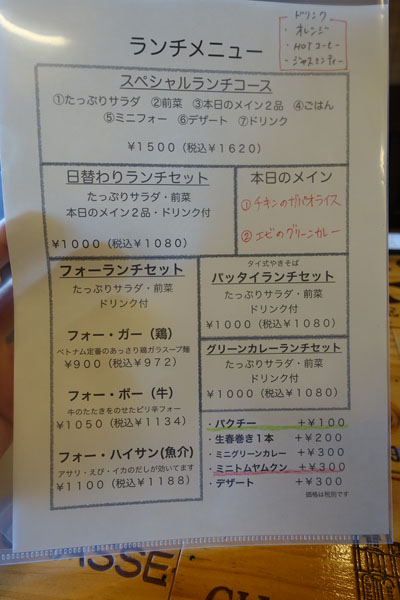 ドリンク
・オレンジ
・HOTコーヒー
・ジャスミンティー
ランチメニュー
スペシャルランチコース
①たっぷりサラダ ②前菜 ③本日のメイン2品 ④ごはん
⑤ミニフォー ⑥デザート ⑦ドリンク
¥1500(税込¥1620)
日替わりランチセット
たっぷりサラダ・前菜
本日のメイン2品・ドリンク付
¥1000(税込¥1080)
本日のメイン
①チキンのガパオライス
②エビのグリーンカレー
フォーランチセット
たっぷりサラダ・前菜
ドリンク付
フォー・ガー(鶏)
ベトナム定番のあっさり鶏ガラスープ麺
¥900(税込¥972)
フォー・ボー(牛)
牛のたたきをのせたピリ辛フォー
¥1050(税込¥1134)
フォー・ハイサン(魚介)
アサリ・えび・イカのだしが効いてます
¥1100(税込¥1188)
タイ式やきそば
パッタイランチセット
たっぷりサラダ・前菜
ドリンク付
¥1000(税込¥1080)
グリーンカレーランチセット
たっぷりサラダ・前菜
ドリンク付
¥1000(税込¥1080)
・パクチー +¥100
・生春巻き1本 +¥200
・ミニグリーンカレー +¥300
・ミニトムヤムクン +¥300
・デザート +¥300
価格は税別です